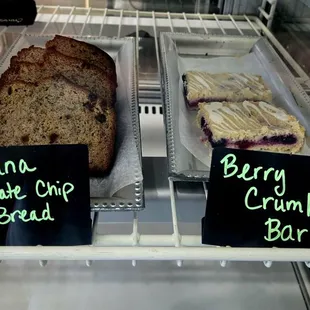 na
ate Chip
Bread
Berry
Crum
Bar